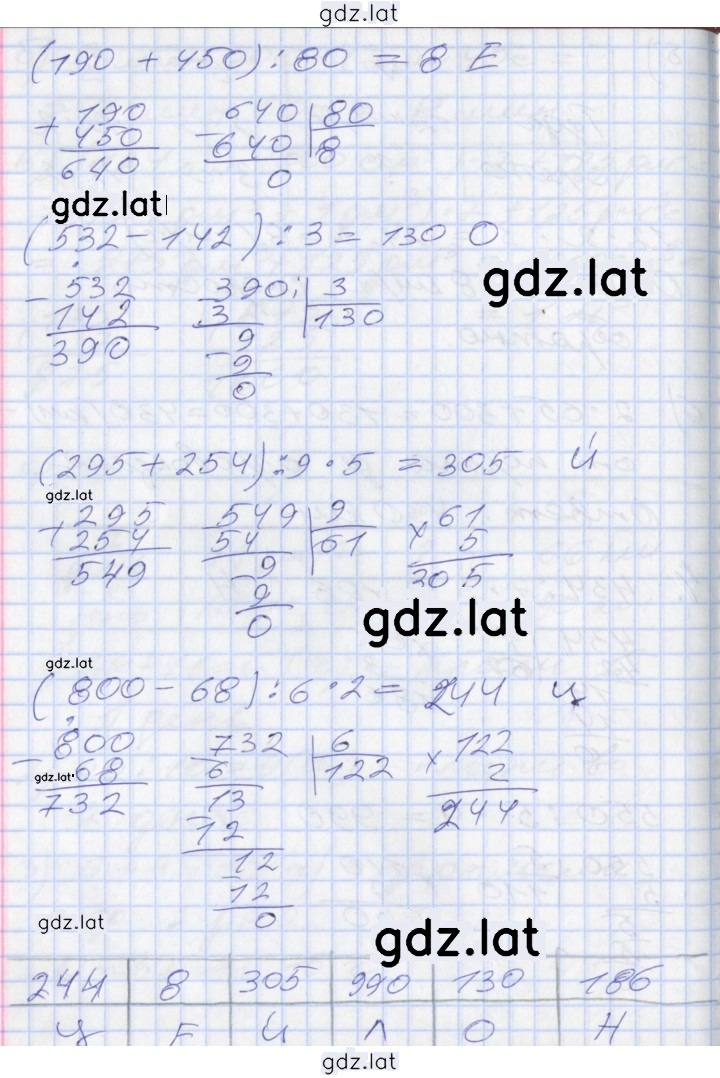 gdz.lat
(190 + 450) : 80 = 8 Е
+ 190
450
640
- 640 | 80
640 | 8
0
gdz.lat
(532 - 142) : 3 = 130 О
gdz.lat
- 532
142
390
- 390 | 3
3 | 130
- 9
9
0
(295 + 254) : 9 · 5 = 305 Й
gdz.lat
+ 295
254
549
- 549 | 9
54 | 61
- 9
9
0
× 61
5
305
gdz.lat
gdz.lat
(800 - 68) : 6 · 2 = 244 Ц
- 800
gdz.lat 68
732
- 732 | 6
6 | 122
- 13
12
- 12
12
0
× 122
2
244
gdz.lat
gdz.lat
244 8 305 990 130 186
Ц Е Й Л О Н
gdz.lat